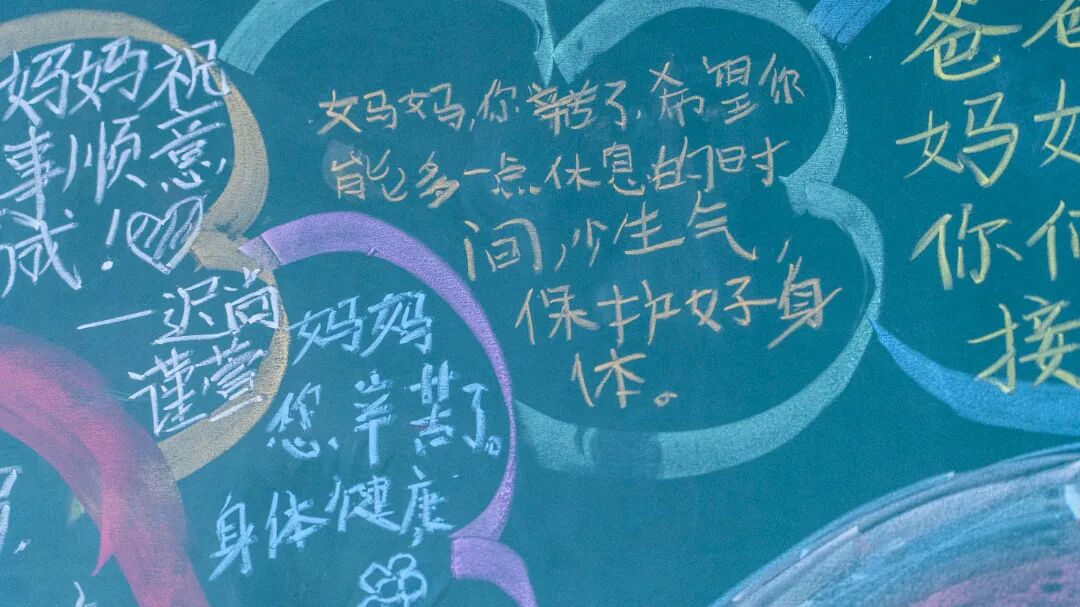 妈妈祝
事顺意,
成!
一迟尚
谨萱
妈妈,你辛苦了,希望你
能多一点休息的时
间,少生气,
保护好身
体。
妈妈
您辛苦了。
身体健康
爸爸
妈妈
你们
接